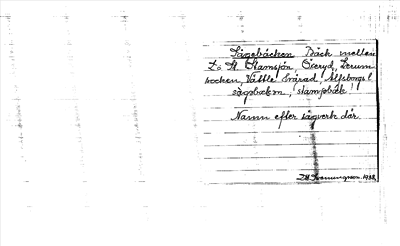 Sågebäcken Bäck mellan
L:a St. Stamsjön, Öxeryd, Lerum
socken, Vättle härad, Älfsborgs l
sågebäcken, stampbäk
Namn efter sågverk där.
1938